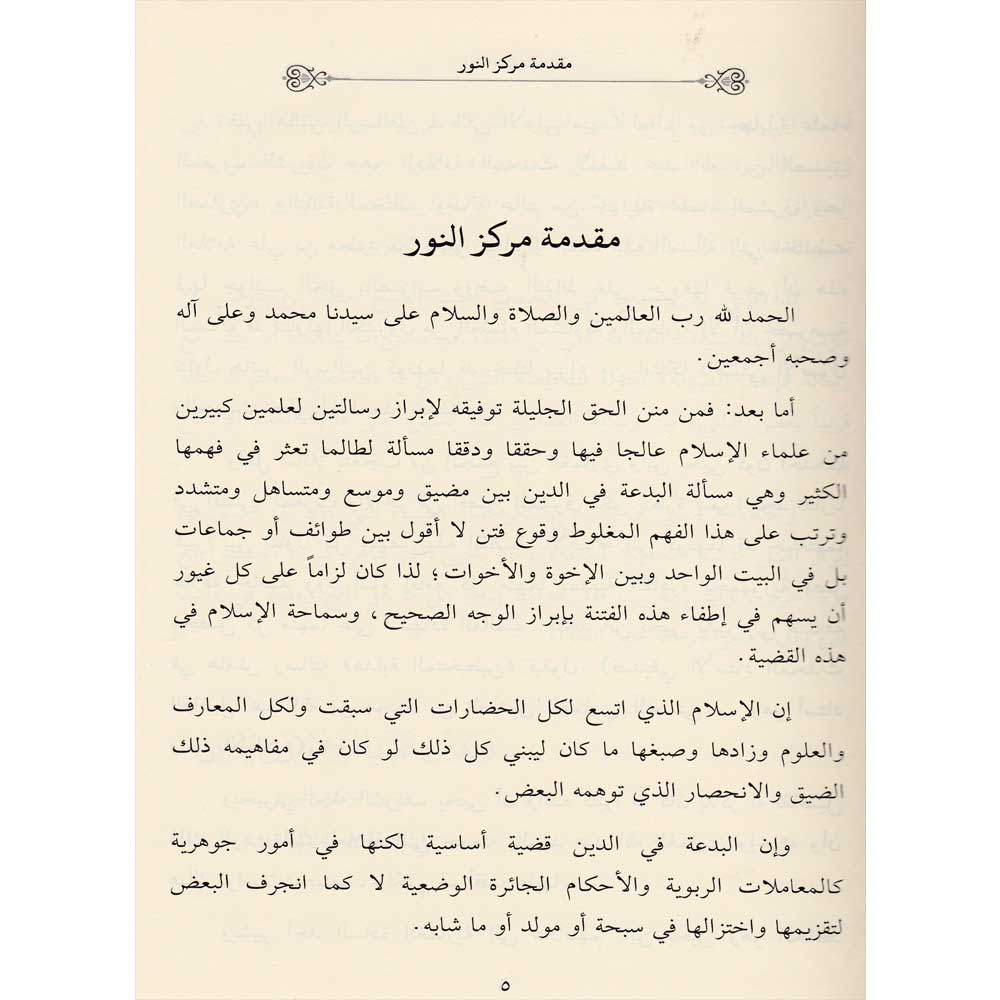 مقدمة مركز النور
مقدمة مركز النور
الحمد لله رب العالمين والصلاة والسلام على سيدنا محمد وعلى آله
وصحبه أجمعين.
أما بعد: فمن منن الحق الجليلة توفيقه لإبراز رسالتين لعلمين كبيرين
من علماء الإسلام عالجا فيها وحققا ودققا مسألة لطالما تعثر في فهمها
الكثير وهي مسألة البدعة في الدين بين مضيق وموسع ومتساهل ومتشدد
وترتب على هذا الفهم المغلوط وقوع فتن لا أقول بين طوائف أو جماعات
بل في البيت الواحد وبين الإخوة والأخوات؛ لذا كان لزاماً على كل غيور
أن يسهم في إطفاء هذه الفتنة بإبراز الوجه الصحيح، وسماحة الإسلام في
هذه القضية.
إن الإسلام الذي اتسع لكل الحضارات التي سبقت ولكل المعارف
والعلوم وزادها وصبغها ما كان ليبني كل ذلك لو كان في مفاهيمه ذلك
الضيق والانحصار الذي توهمه البعض.
وإن البدعة في الدين قضية أساسية لكنها في أمور جوهرية
كالمعاملات الربوية والأحكام الجائرة الوضعية لا كما انجرف البعض
لتقزيمها واختزالها في سبحة أو مولد أو ما شابه.
٥